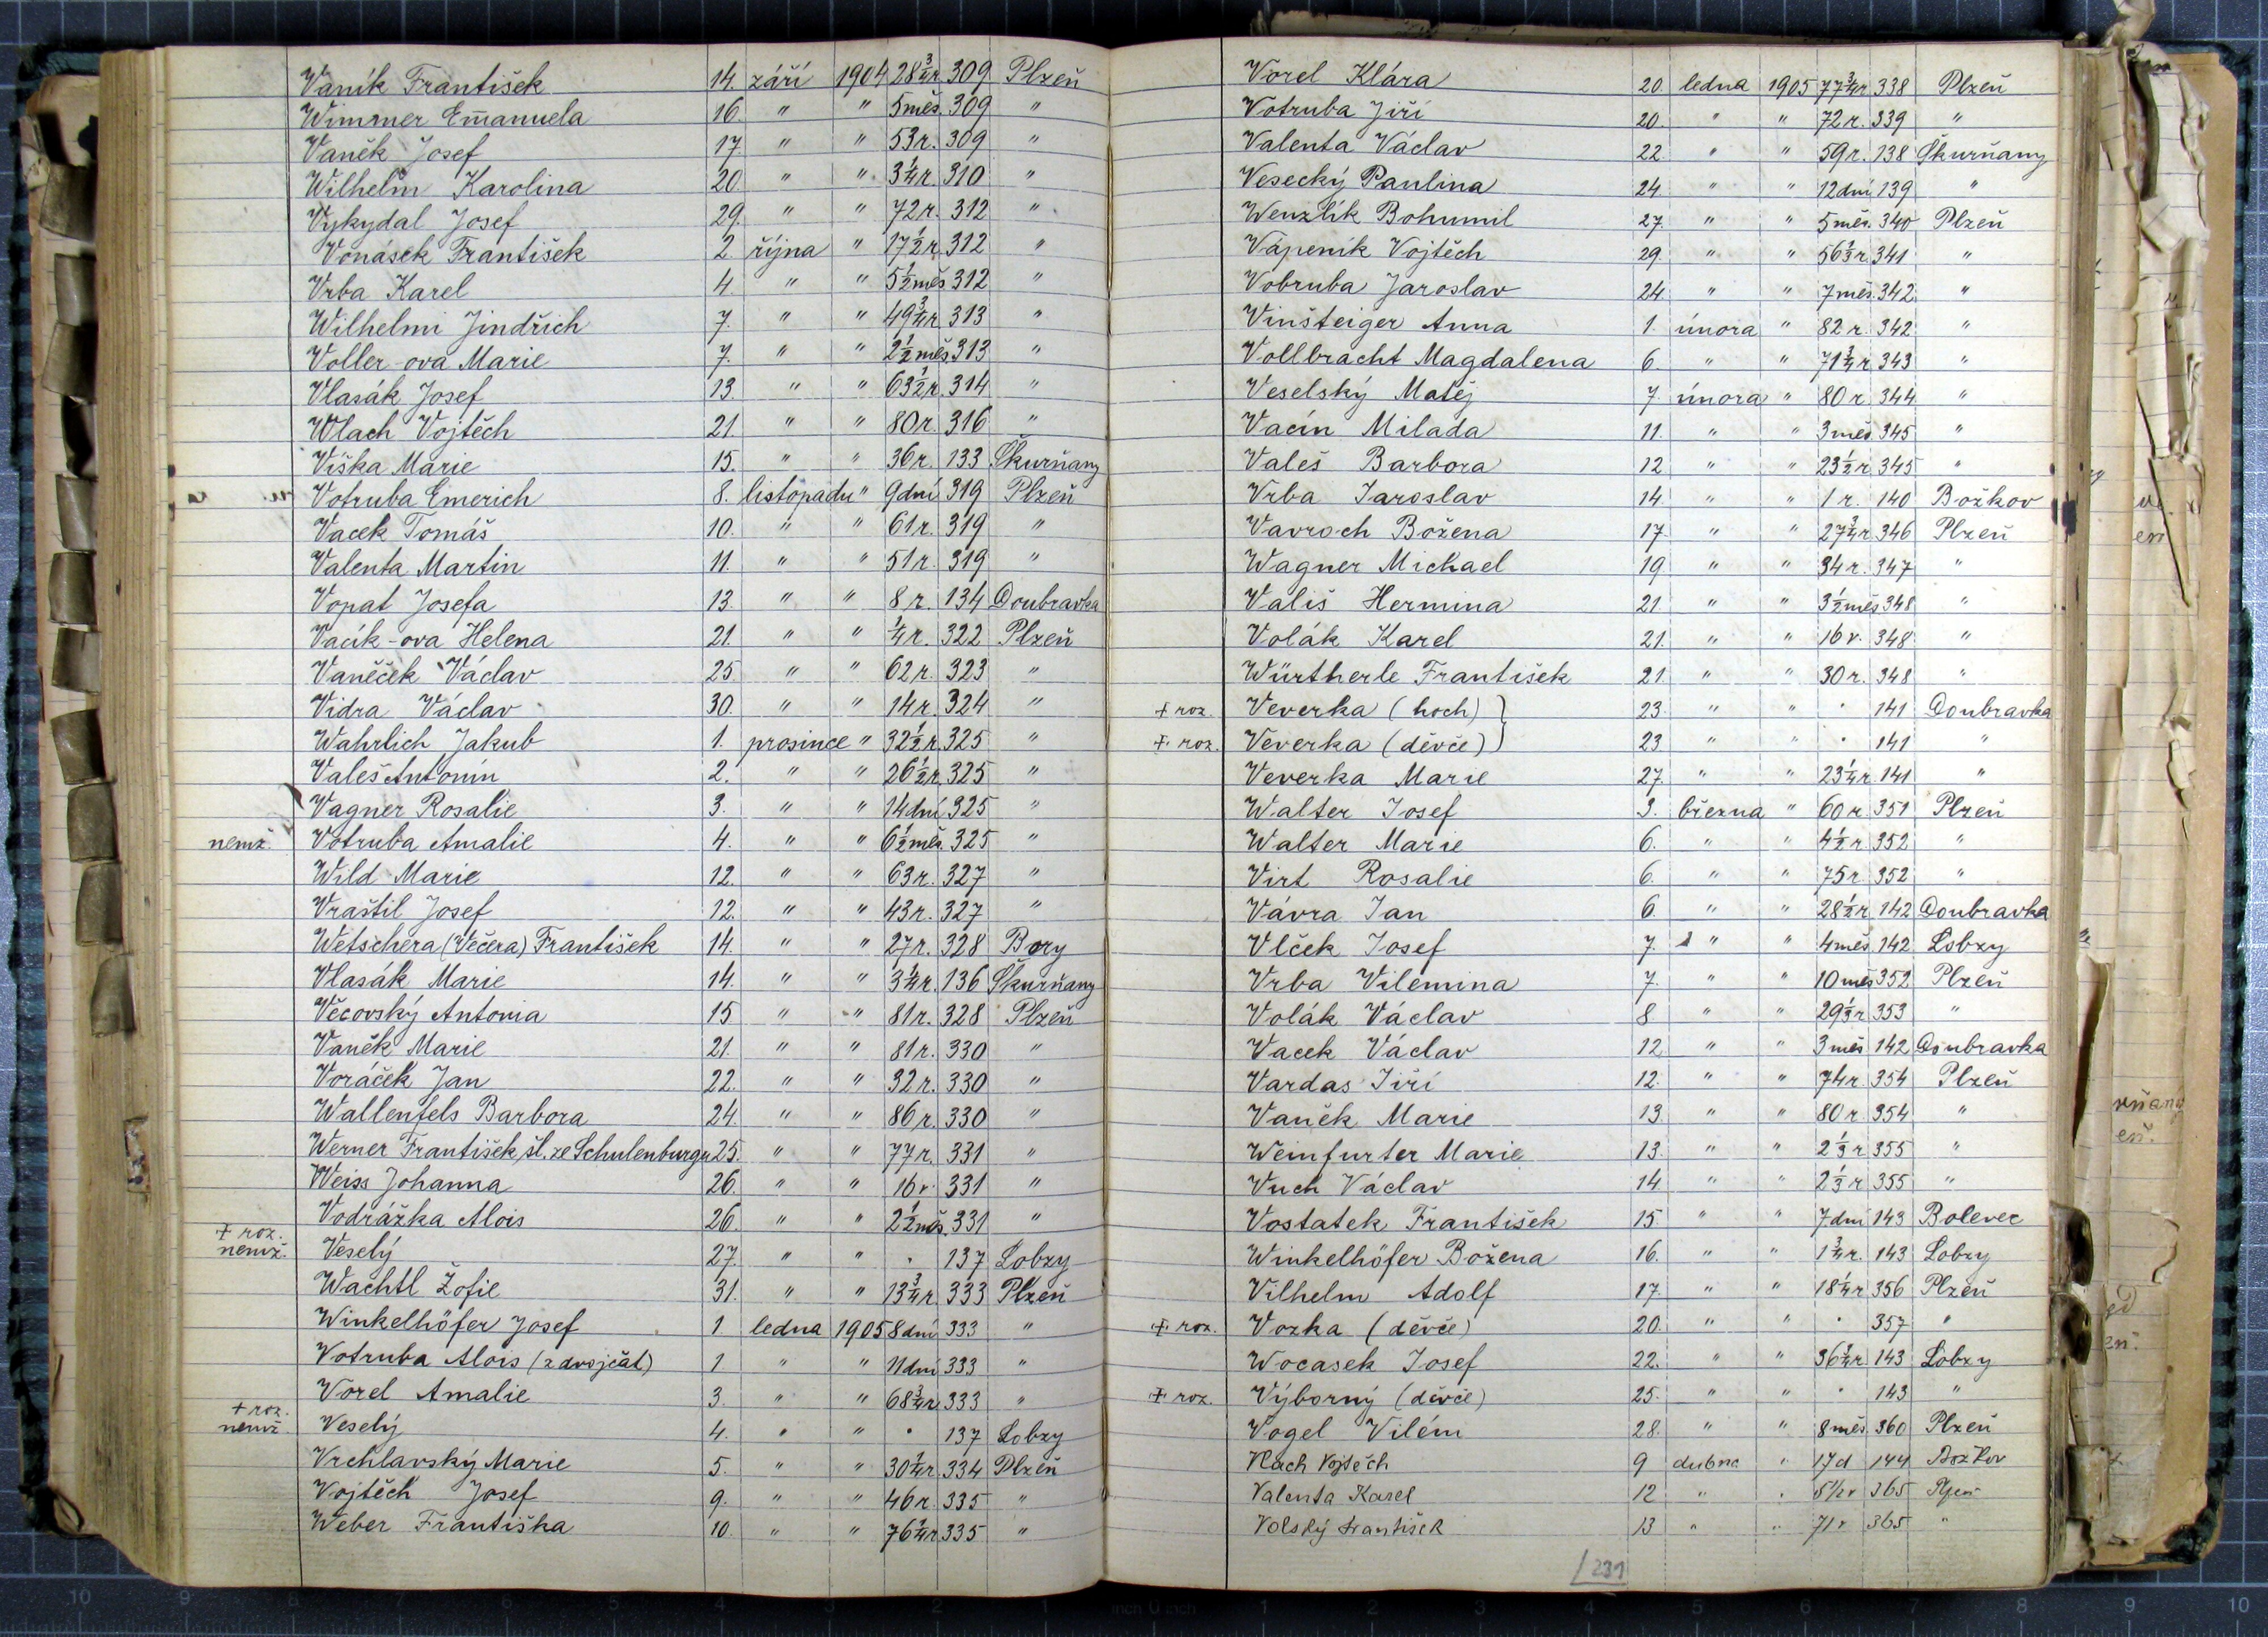 Vaník František 14. září 1904 28 3/4 r. 309 Plzeň
Wimmer Em̄anuela 16. " " 5 měs. 309 "
Vaněk Josef 17 " " 53 r. 309 "
Wilhelm Karolina 20 " " 3 1/4 r. 310 "
Vykydal Josef 29. " " 72 r. 312 "
Vonásek František 2. října " 17 1/2 r. 312 "
Vrba Karel 4. " " 5 1/2 měs 312 "
Wilhelmi Jindřich 7. " " 49 3/4 r. 313 "
Voller-ova Marie 7. " " 2 1/2 měs 313 "
Vlasák Josef 13. " " 63 1/2 r. 314 "
Wlach Vojtěch 21. " " 80 r. 316 "
Viška Marie 15. " " 36 r. 133 Škurňany
Votruba Emerich 8. listopadu " 9 dní 319 Plzeň
Vacek Tomáš 10. " " 61 r. 319 "
Valenta Martin 11. " " 51 r. 319 "
Vopat Josefa 13. " " 8 r. 134 Doubravka
Vacík-ova Helena 21. " " 1/4 r. 322 Plzeň
Vaněček Václav 25. " " 62 r. 323 "
Vidra Václav 30. " " 14 r. 324 "
Wahrlich Jakub 1. prosince " 32 1/2 r. 325 "
Valeš Antonín 2. " " 26 1/2 r. 325 "
Vagner Rosalie 3. " " 14 dní 325 "
nemž. Votruba Amalie 4. " " 6 1/2 měs. 325 "
Wild Marie 12. " " 63 r. 327 "
Vraštil Josef 12. " " 43 r. 327 "
Wetschera (Večera) František 14. " " 27 r. 328 Bory
Vlasák Marie 14. " " 3 1/4 r. 136 Škurňany
Věcovský Antonia 15 " " 81 r. 328 Plzeň
Vaněk Marie 21. " " 81 r. 330 "
Voráček Jan 22. " " 32 r. 330 "
Wallenfels Barbora 24. " " 86 r. 330 "
Werner František, šl. ze Schulenburgu 25. " " 77 r. 331 "
Weiss Johanna 26. " " 16 r. 331 "
Vodrážka Alois 26. " " 2 1/2 měs. 331 "
+ roz. nemž. Veselý 27. " " · 137 Lobzy
Wachtl Žofie 31. " " 13 3/4 r. 333 Plzeň
Winkelhöfer Josef 1 ledna 1905 8 dní 333 "
Votruba Alois (z dvojčat) 1 " " 11 dní 333 "
Vorel Amalie 3. " " 68 3/4 r 333 "
+ roz. nemž. Veselý 4. " " · 137 Lobzy
Vrchlavský Marie 5. " " 30 1/4 r. 334 Plzeň
Vojtěch Josef 9. " " 46 r. 335 "
Weber Františka 10. " " 76 1/4 r. 335 "
Vorel Klára 20. ledna 1905 77 3/4 r 338 Plzeň
Votruba Jiří 20. " " 72 r. 339 "
Valenta Václav 22. " " 59 r. 138 Škurňany
Vesecký Paulina 24 " " 12 dní 139 "
Wenzlík Bohumil 27. " " 5 měs. 340 Plzeň
Vápeník Vojtěch 29 " " 56 1/3 r. 341 "
Vobruba Jaroslav 24. " " 7 měs. 342 "
Vinšteiger Anna 1. února " 82 r. 342 "
Vollbracht Magdalena 6. " " 71 3/4 r 343 "
Veselský Matěj 7. února " 80 r. 344 "
Vacín Milada 11. " " 3 měs. 345 "
Valeš Barbora 12 " " 23 1/2 r. 345 "
Vrba Jaroslav 14. " " 1 r. 140 Božkov
Vavroch Božena 17. " " 27 3/4 r. 346 Plzeň
Wagner Michael 19 " " 34 r. 347 "
Vališ Hermina 21. " " 3 1/2 měs 348 "
Volák Karel 21. " " 16 r. 348 "
Würtherle František 21. " " 30 r. 348 "
+ roz. Veverka (hoch) } 23. " " · 141 Doubravka
+ roz. Veverka (děvče) } 23 " " · 141 "
Veverka Marie 27. " " 23 1/4 r. 141 "
Walter Josef 3. března " 60 r. 351 Plzeň
Walter Marie 6. " " 4 1/2 r. 352 "
Virt Rosalie 6. " " 75 r. 352 "
Vávra Jan 6. " " 28 1/2 r. 142 Doubravka
Vlček Josef 7. " " 4 měs. 142 Lobzy
Vrba Vilemina 7. " " 10 měs 352 Plzeň
Volák Václav 8 " " 29 1/3 r 353 "
Vacek Václav 12 " " 3 měs 142 Doubravka
Vardas Jiří 12. " " 74 r. 354 Plzeň
Vaněk Marie 13. " " 80 r. 354 "
Weinfurter Marie 13. " " 2 1/3 r. 355 "
Wuch Václav 14 " " 2 1/3 r 355 "
Vostatek František 15. " " 7 dní 143 Bolevec
Winkelhöfer Božena 16. " " 1 3/4 r. 143 Lobzy
Vilhelm Adolf 17. " " 18 1/4 r 356 Plzeň
+ roz. Vozka (děvče) 20. " " · 357 "
Wocasek Josef 22. " " 36 3/4 r. 143 Lobzy
+ roz. Výborný (děvče) 25. " " · 143 "
Vogel Vilém 28. " " 8 měs. 360 Plzeň
Vlach Vojtěch 9 dubna " 17 d 144 Božkov
Valenta Karel 12 " " 5 1/2 r 365 Plzeň
Volský František 13 " " 71 r 365 "
231